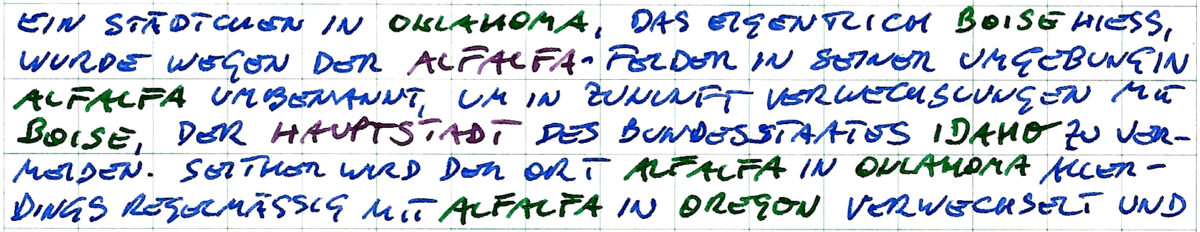 EIN STÄDTCHEN IN OKLAHOMA, DAS EIGENTLICH BOISE HIESS,
WURDE WEGEN DER ALFALFA-FELDER IN SEINER UMGEBUNG IN
ALFALFA UMBENANNT, UM IN ZUKUNFT VERWECHSLUNGEN MIT
BOISE, DER HAUPTSTADT DES BUNDESSTAATES IDAHO ZU VER-
MEIDEN. SEITHER WIRD DER ORT ALFALFA IN OKLAHOMA ALLER-
DINGS REGELMÄSSIG MIT ALFALFA IN OREGON VERWECHSELT UND